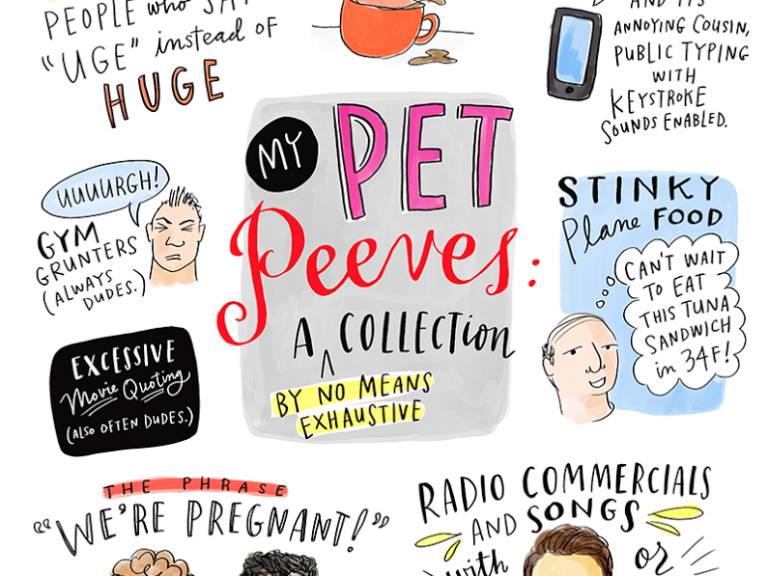 PEOPLE who SAY
"UGE" instead of
HUGE
AND ITS
ANNOYING COUSIN,
PUBLIC TYPING
WITH
KEYSTROKE
SOUNDS ENABLED.
MY
PET
Peeves:
A COLLECTION
^
BY NO MEANS
EXHAUSTIVE
UUUURGH!
GYM
GRUNTERS
(ALWAYS
DUDES.)
STINKY
Plane FOOD
CAN'T WAIT
TO EAT
THIS TUNA
SANDWICH
in 34F!
EXCESSIVE
Movie Quoting
(ALSO OFTEN DUDES.)
THE PHRASE
"WE'RE PREGNANT!"
RADIO COMMERCIALS
AND SONGS
with or